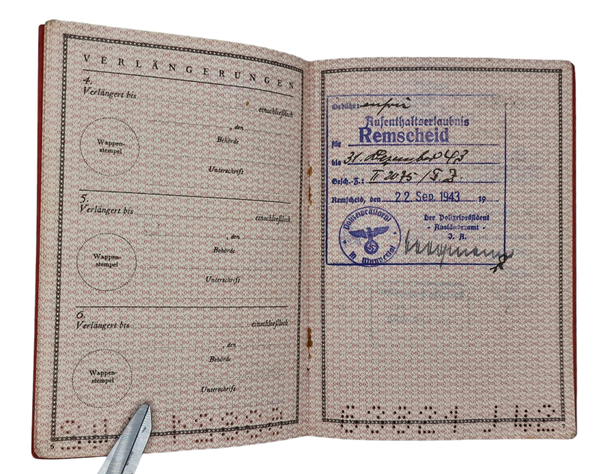 VERLÄNGERUNGEN
4.
Verlängert bis
einschließlich
, den
Wappen-
stempel
Behörde
Unterschrift
5.
Verlängert bis
einschließlich
, den
Wappen-
stempel
Behörde
Unterschrift
6.
Verlängert bis
einschließlich
, den
Wappen-
stempel
Behörde
Unterschrift
6
Gebühr:
Aufenthaltserlaubnis
für Remscheid
bis 31. Dezember 43
Gesch.-Z.: II 2075
Remscheid, den 22 Sep. 1943 19
Der Polizeipräsident
- Ausländeramt -
J. A.
7